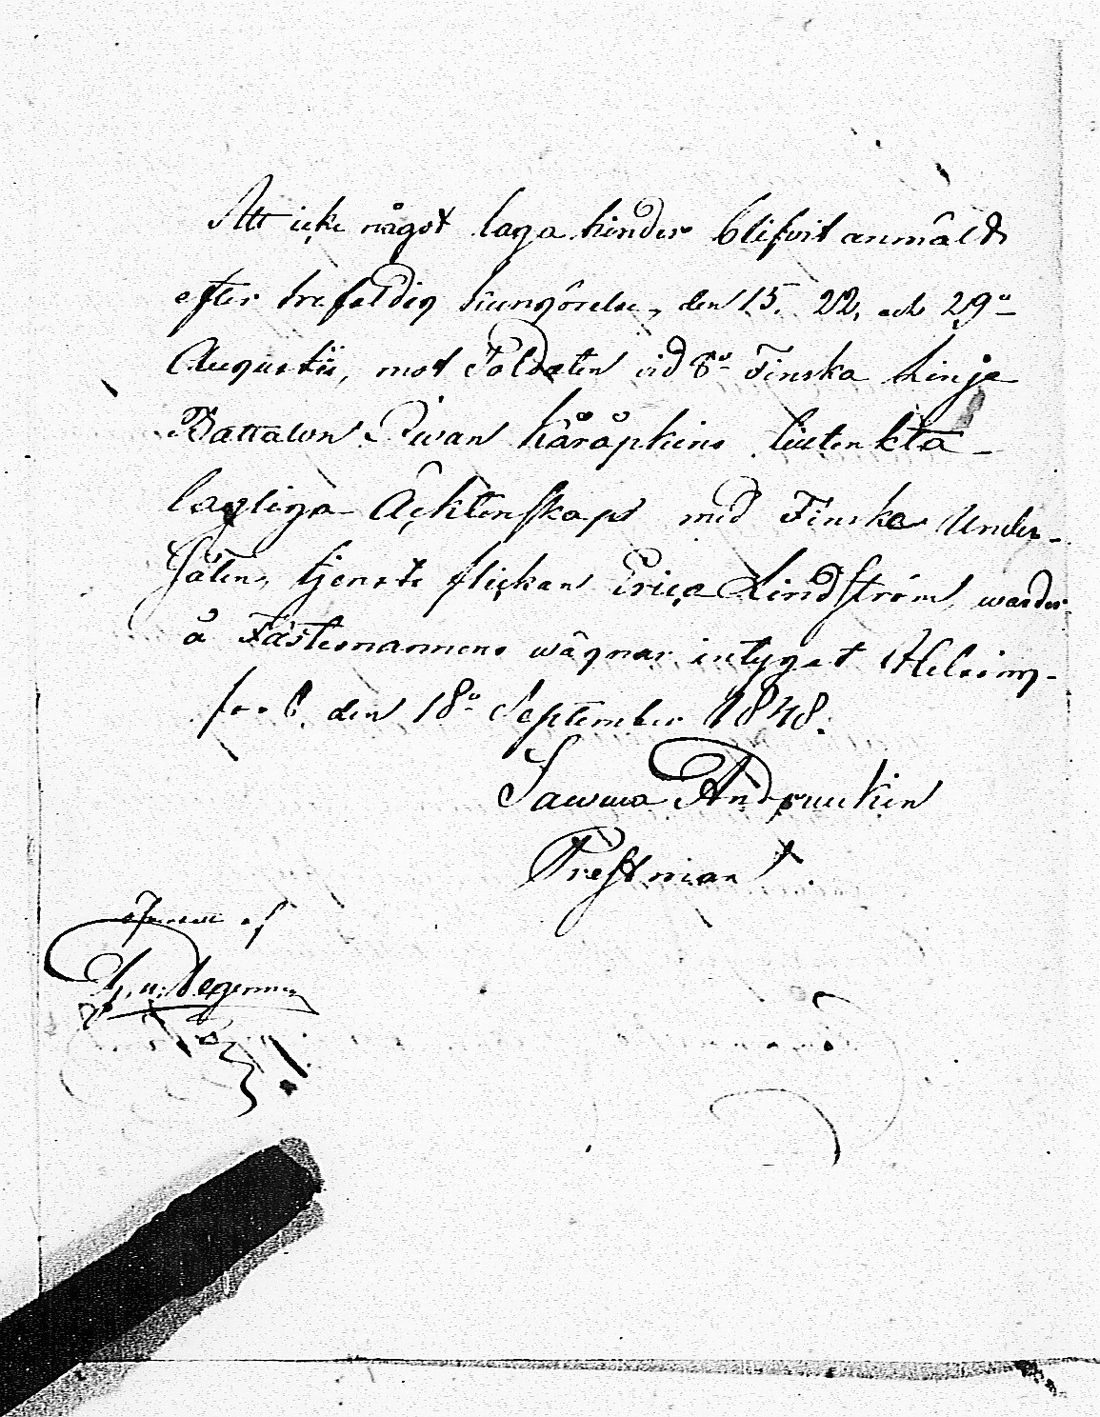 Att icke något laga hinder blifvit anmäldt
efter trefaldig kungörelse, den 15. 22, och 29o
Augustii, mot Soldaten vid 6o Finska Linje
Battalion Iwan Kåråpkins
lagliga Äcktenskap med Finska Under-
såten, tjenste flickan Erica Lindström, warder
å Fästemannens wägnar intygat Helsing-
fors den 18o September 1848.
Sawwa Andruckin
Prestman